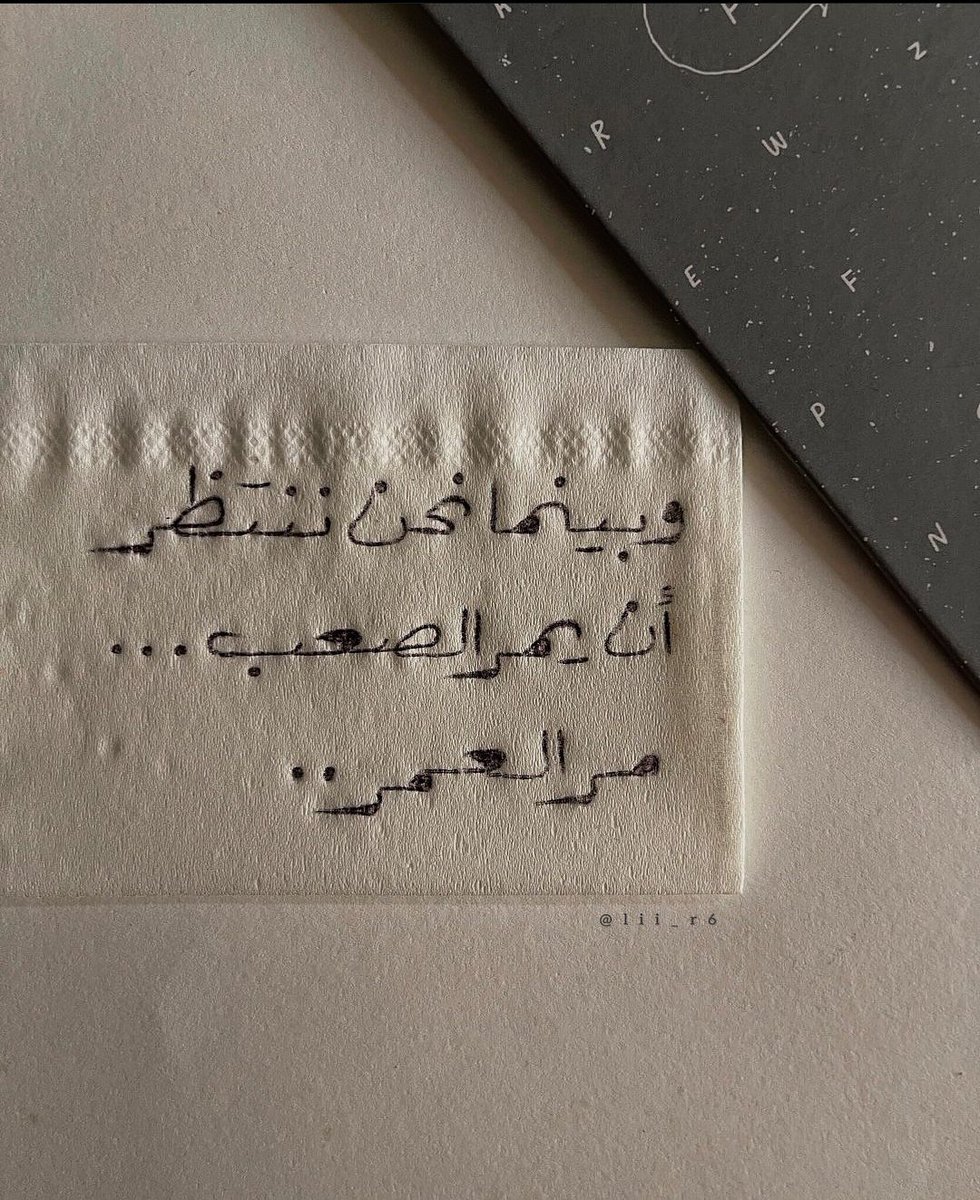 A
P
N
R
W
E
F
P
N
وبينما نحن ننتظر
أن يمر الصعب...
مر العمر..
@lii_r6